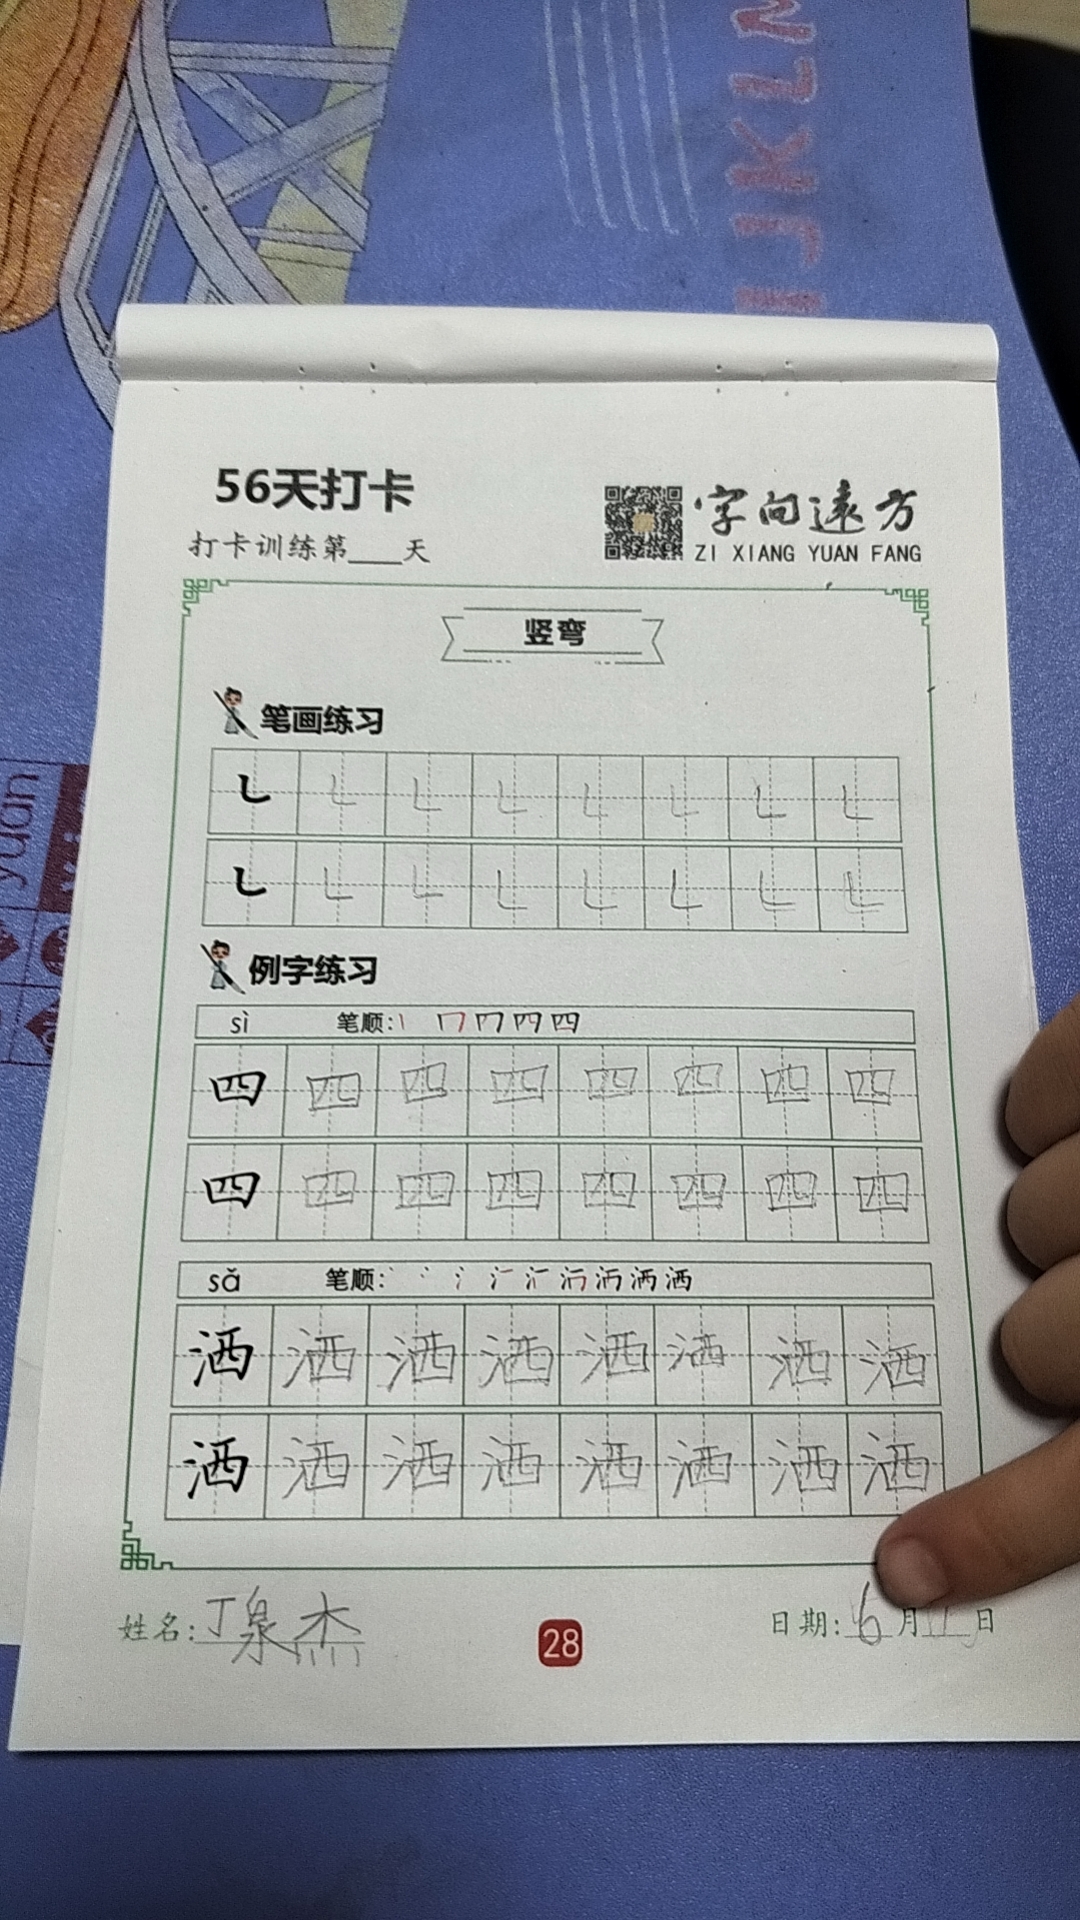 IJKLM
yuan
56天打卡
打卡训练第____天
字向远方
ZI XIANG YUAN FANG
竖弯
笔画练习
㇄ ㇄ ㇄ ㇄ ㇄ ㇄ ㇄ ㇄
㇄ ㇄ ㇄ ㇄ ㇄ ㇄ ㇄ ㇄
例字练习
sì 笔顺:
四 四 四 四 四 四 四 四
四 四 四 四 四 四 四 四
sǎ 笔顺:
洒 洒 洒 洒 洒 洒 洒 洒
洒 洒 洒 洒 洒 洒 洒 洒
姓名:丁泉杰
28
日期:6月11日